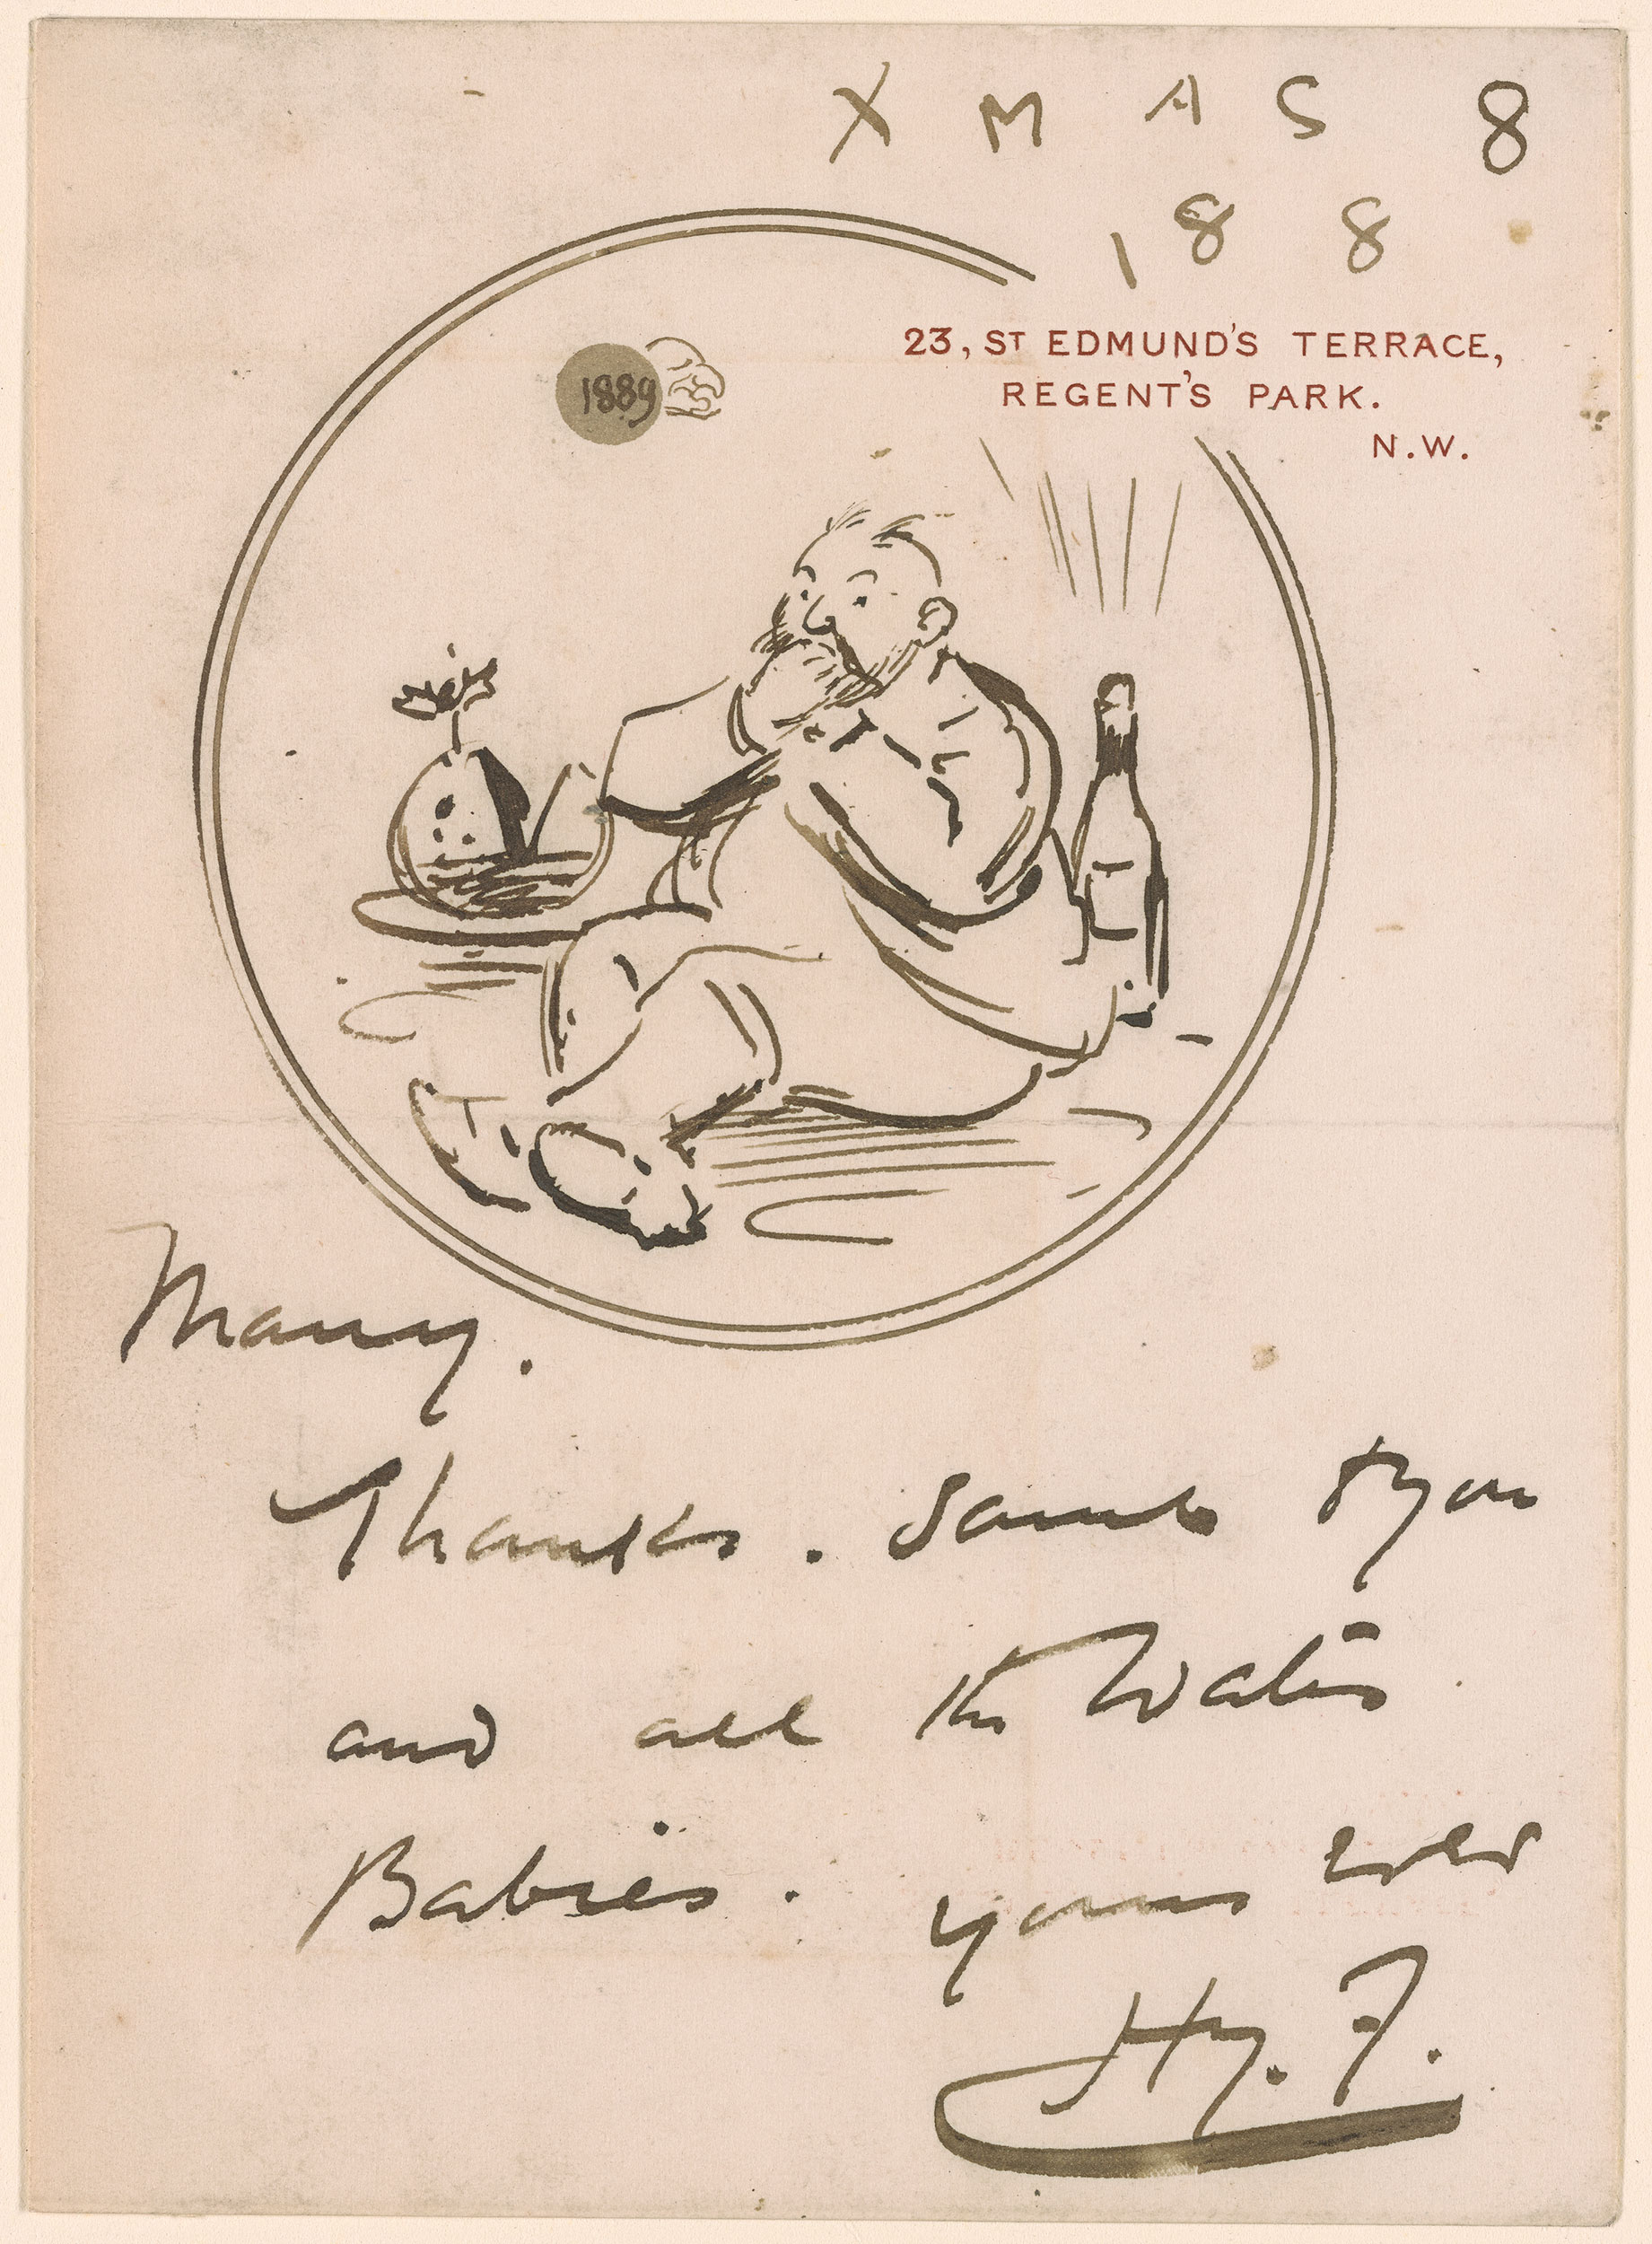 XMAS 8
188
23, ST EDMUND'S TERRACE,
REGENT'S PARK.
N.W.
1889
Many.
Thanks. Same to you
and all the
Babies. yours ever
Hy. F.